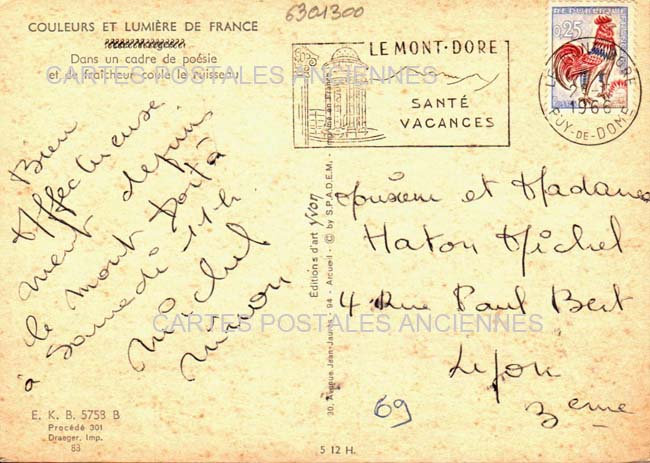 6301300
COULEURS ET LUMIÈRE DE FRANCE
Dans un cadre de poésie
et de fraîcheur coule le ruisseau
CARTES POSTALES ANCIENNES
LE MONT-DORE
SANTÉ
VACANCES
RÉPUBLIQUE
0,25
LE MONT DORE
1966
PUY-DE-DOME
Bien
Affectueuse
ment depuis
le mont Dore
à Samedi 11h
Michel
Editions d'art Yvon
30, Avenue Jean-Jaurès - 94 - Arcueil - © by S.P.A.D.E.M. - Imprimé en France
et Madame
Haton Michel
4 Rue Paul Bert
Lyon
3eme
CARTES POSTALES ANCIENNES
69
E. K. B. 5758 B
Procédé 301
Draeger, Imp.
88
5 12 H.